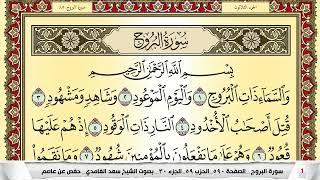 الجزء الثلاثون
سورة البروج
سُورَةُ البُرُوجِ
بِسْمِ اللَّهِ الرَّحْمَٰنِ الرَّحِيمِ
وَالسَّمَاءِ ذَاتِ الْبُرُوجِ ١ وَالْيَوْمِ الْمَوْعُودِ ٢ وَشَاهِدٍ وَمَشْهُودٍ ٣
قُتِلَ أَصْحَابُ الْأُخْدُودِ ٤ النَّارِ ذَاتِ الْوَقُودِ ٥ إِذْ هُمْ عَلَيْهَا
قُعُودٌ ٦ وَهُمْ عَلَىٰ مَا يَفْعَلُونَ بِالْمُؤْمِنِينَ شُهُودٌ ٧ وَمَا نَقَمُوا
سورة البروج - الصفحة ٥٩٠ - الحزب ٥٩ - الجزء ٣٠ - بصوت الشيخ سعد الغامدي - حفص عن عاصم
1